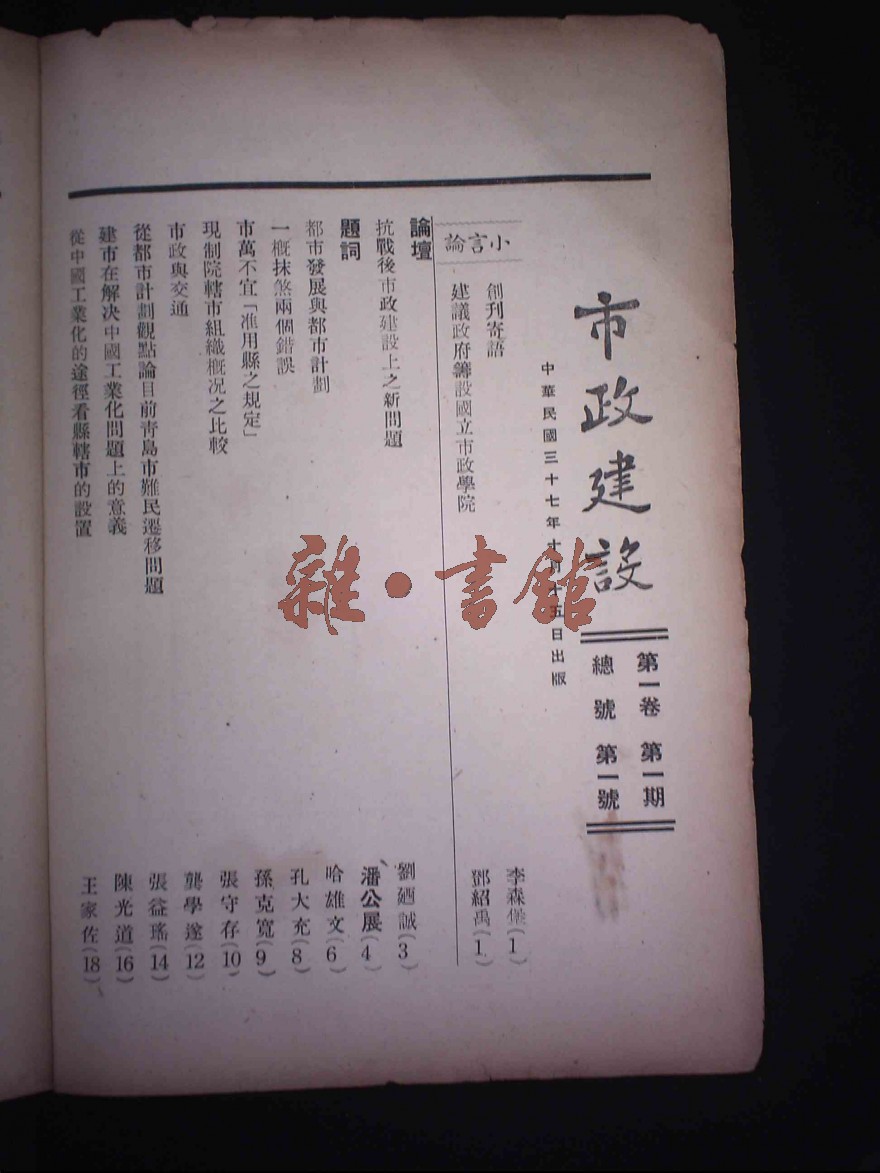 市政建設
第一卷 第一期
總號 第一號
中華民國三十七年十月十五日出版
小言論
創刊寄語 李森 (1)
建議政府籌設國立市政學院 鄧紹禹(1)
論壇
抗戰後市政建設上之新問題 劉迺誠(3)
題詞 潘公展(4)
都市發展與都市計劃 哈雄文(6)
一概抹煞兩個錯誤 孔大充(8)
市萬不宜「准用縣之規定」 孫克寬(9)
現制院轄市組織概况之比較 張守存(10)
市政與交通 龔學遂(12)
從都市計劃觀點論目前青島市難民遷移問題 張益瑤(14)
建市在解决中國工業化問題上的意義 陳光道(16)
從中國工業化的途徑看縣轄市的設置 王家佐(18)
雜·書館